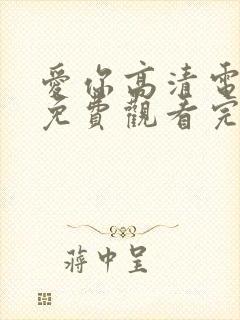 愛你高清電
免費觀看完
蔣中呈